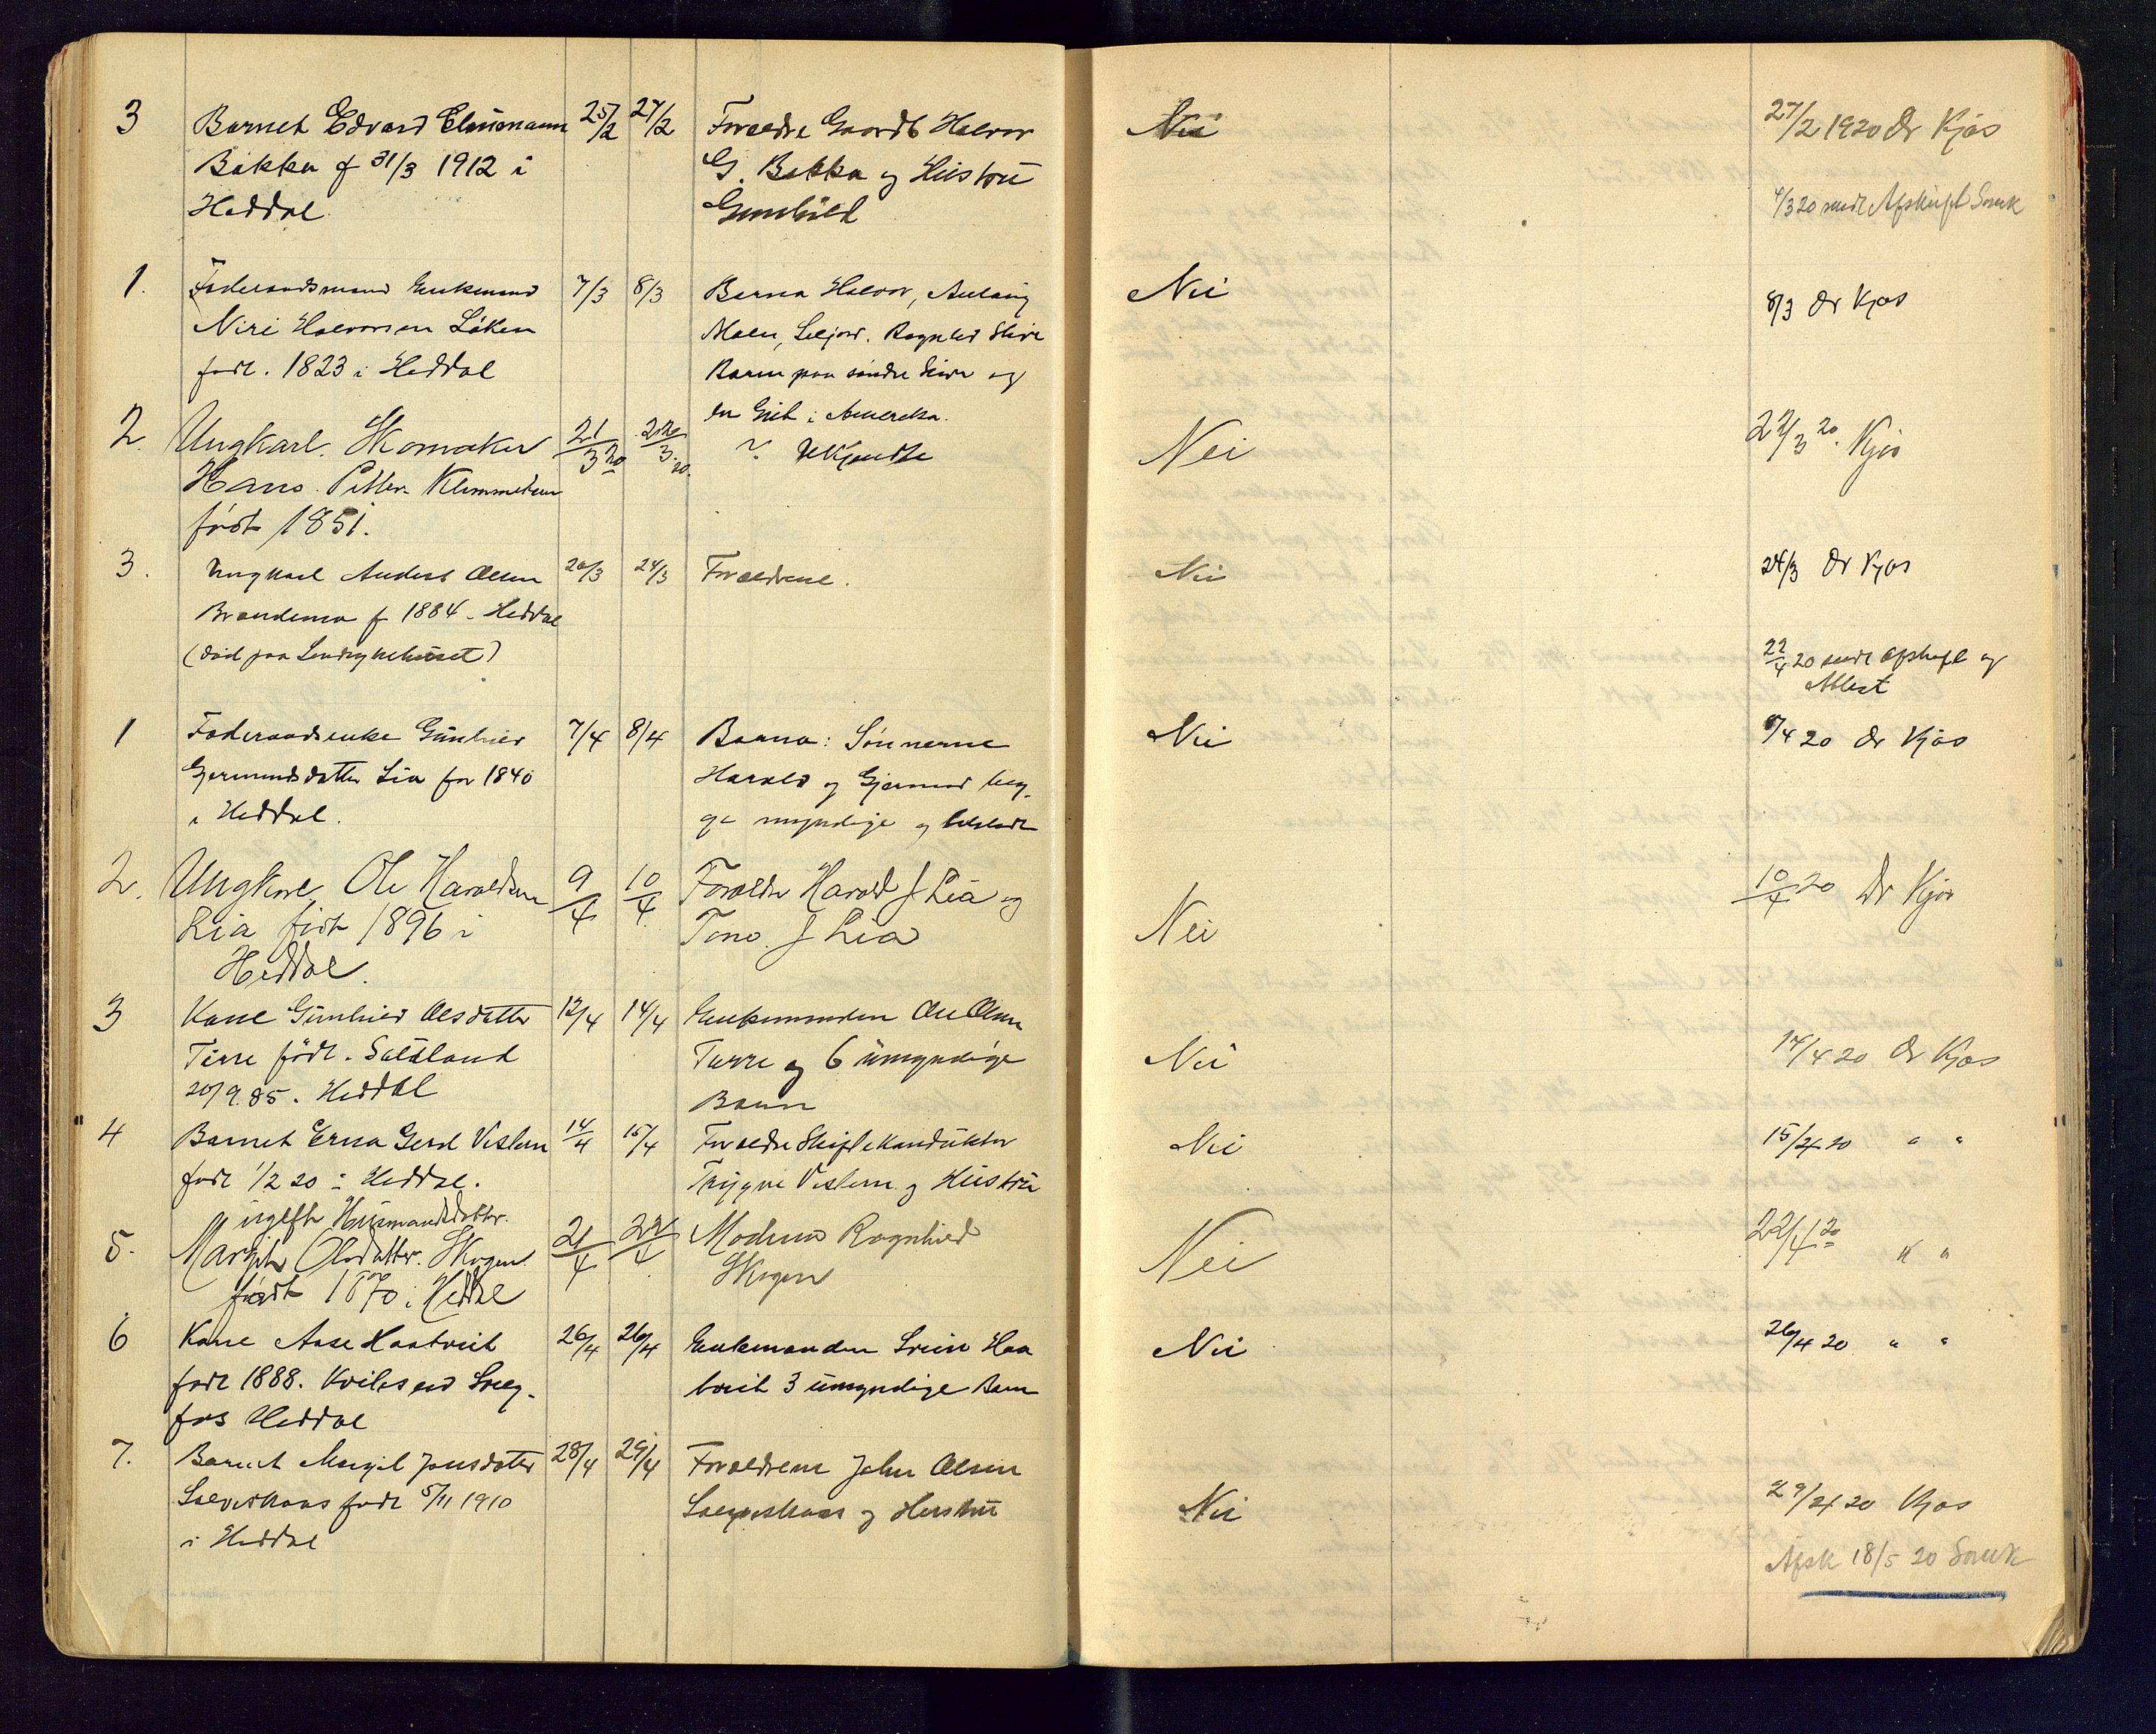 3 Barnet Edvard Elmemann 25/2 27/2 Forældre Gaardb Halvor Nei 27/2 1920 Dr Kjøs
Bakka f 31/3 1912 i G. Bakka og Hustru
Heddal Gunhild 4/3 20 sendt Afskrift Sorensk
1. Føderaadsmand Enkemand 7/3 8/3 Barna Halvor, Aslaug Nei 8/3 Dr Kjøs
Niri Halvorsen Løken Seljord. Ragnhild
født. 1823 i Heddal Barn paa søndre og
en Gift i Amerika.
2. Ungkarl. Skomaker 21/3 20 22/3 20. ? Ukjendte Nei 22/3 20. Kjøs
Hans Petter Klemmetsen
født 1851.
3. Ungkarl Anders Olsen 20/3 24/3 Forældrene. Nei 24/3 Dr Kjøs
f 1884 - Heddal
(død paa Landsykehuset) 22/4 20 sendt Afskrift og
Attest
1 Føderaadsenke Gunhild 7/4 8/4 Barna: Sønnerne Nei 8/4 20 Dr Kjøs
Gjermundsdatter Lia før 1840 Harald og Gjermund beg-
i Heddal. ge myndige og
2. Ungkarl Ole Haraldsen 9/4 10/4 Forældre Harald J Lia og Nei 10/4 20 Dr Kjøs
Lia født 1896 i Tone J Lia
Heddal.
3 Kone Gunhild Olsdatter 12/4 14/4 Enkemanden Ole Olsen Nei 14/4 20 Dr Kjøs
Tirre født. Sauland Turre og 6 umyndige
20/9.85. Heddal Barn
4 Barnet Erna Gerd Veslem 14/4 15/4 Forældre Skiftekonduktør Nei 15/4 20 " "
født 1/2 20 i Heddal. Trygve Veslem og Hustru
ugift Husmandsdatter.
5. Margit Olsdatter. Skogen. 21/4 22/4 Moderen Ragnhild Nei 22/4 20 " "
født 1870 i Heddal Skogen
6 Kone Aase Haatveit 26/4 26/4 Enkemanden Svein Haa Nei 26/4 20 " "
født 1888. Svelg- tveit 3 umyndige Barn
fos Heddal
7. Barnet Margit Jonsdatter 28/4 29/4 Forældrene John Olsen Nei 29/4 20 Kjøs
født 5/11 1910 og Hustru
i Heddal Afsk 18/5 20 Sorensk